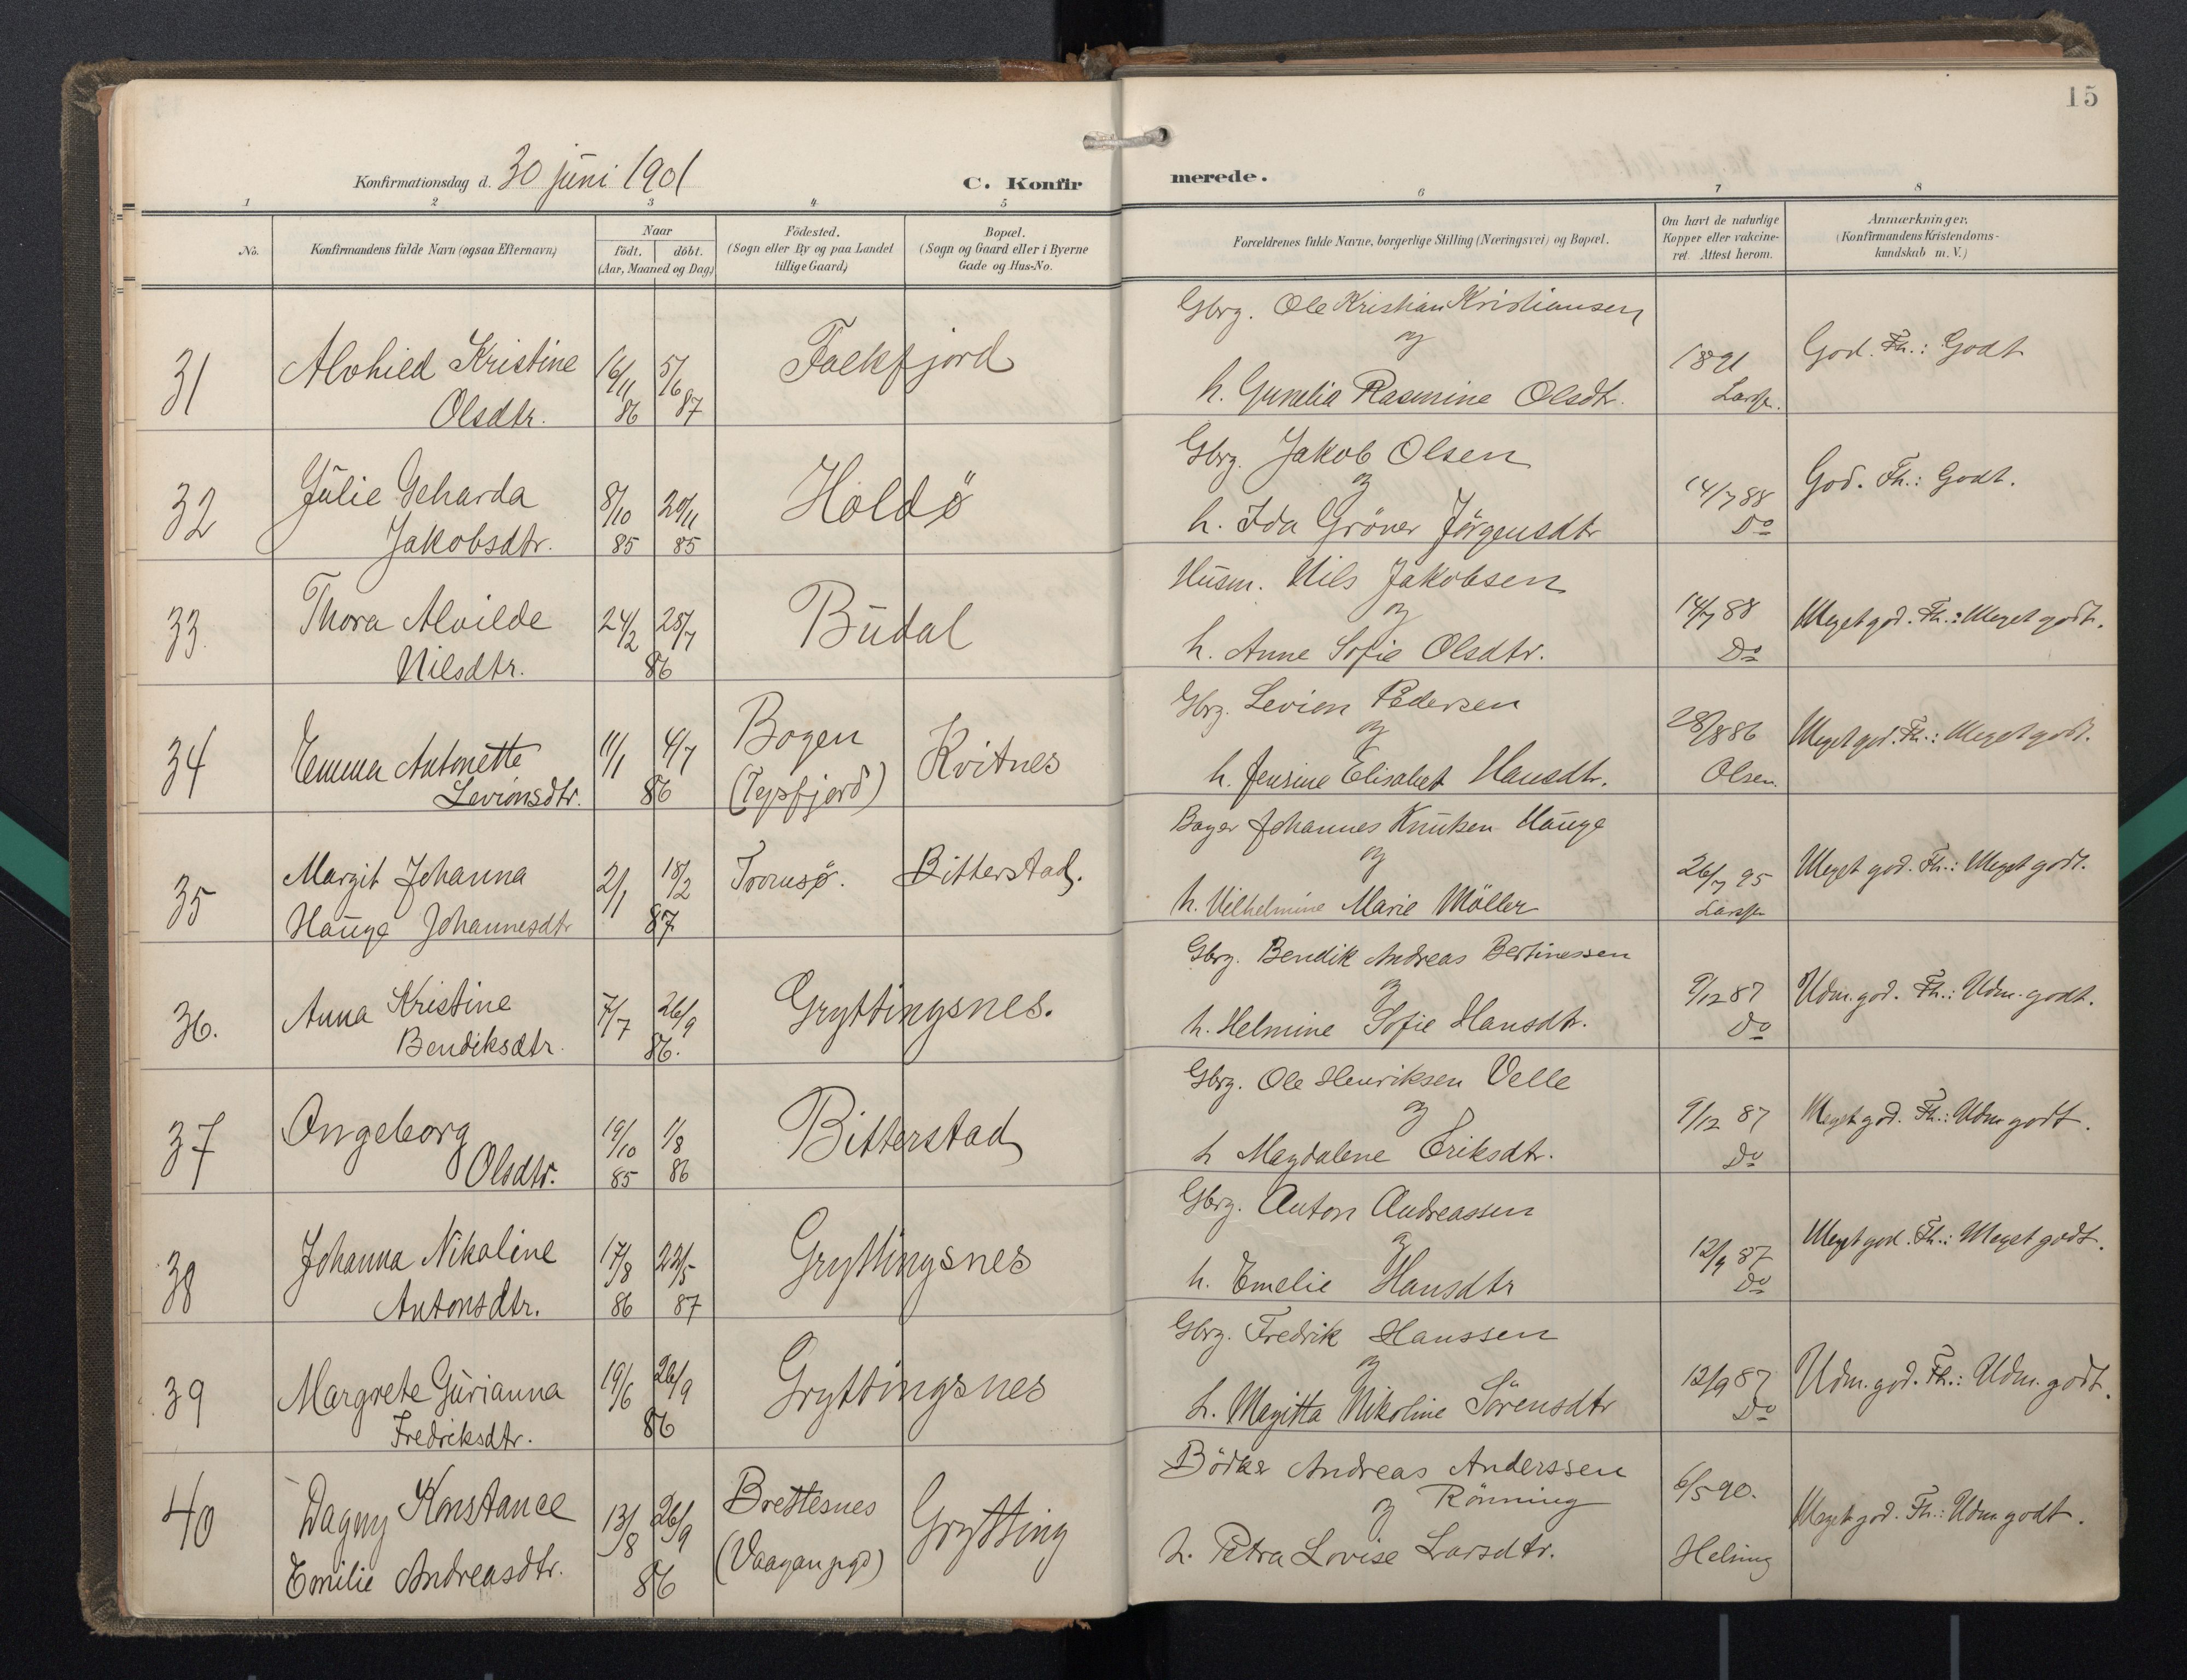 15
Konfirmationsdag d. 30 juni 1901
C. Konfir
merede.
1 2 3 4 5 6 7 8
No.
Konfirmandens fulde Navn (ogsaa Efternavn)
Naar
födt. döbt.
(Aar, Maaned og Dag)
Födested.
(Sogn eller By og paa Landet
tillige Gaard)
Bopæl.
(Sogn og Gaard eller i Byerne
Gade og Hus-No.
Forældrenes fulde Navne, borgerlige Stilling (Næringsvei) og Bopæl.
Om havt de naturlige
Kopper eller vakcine-
ret. Attest herom.
Anmærkninger.
(Konfirmandens Kristendoms-
kundskab m. V.)
31 Alvhild Kristine
Olsdtr.
16/11 86 5/6 87
Falkfjord
Gbrg. Ole Kristian Kristiansen
og
h. Gunelia Rasmine Olsdtr.
1891
God. Fh.: Godt
32 Julie Geharda
Jakobsdtr.
8/10 85 20/11 85
Holdö
Gbrg. Jakob Olsen
og
h. Ida Gröner Jörgensdtr
14/7 88
Do
God. Fh.: Godt.
33. Thora Alvilde
Nilsdtr.
24/2 28/7
86
Budal
Husm. Nils Jakobsen
og
h. Anne Sofie Olsdtr.
14/7 88
Do
Meget god. Fh.: Meget godt.
34 Emma Antonette
Levionsdtr.
11/1 4/7
86
Bogen
Kvitnes
Gbrg. Levion Pedersen
og
h. Jensine Elisabet Hansdtr.
28/8 86
Olsen.
Meget god. Fh.: Meget godt.
35 Margit Johanna
Hauge Johannesdtr
2/1 18/2
87
Tromsø. Bitterstad.
Bager Johannes Knutsen Hauge
og
h. Vilhelmine Marie Möller
26/7 95
Meget god. Fh.: Meget godt.
36. Anna Kristine
Bendiksdtr.
7/7 26/9
86.
Gryttingsnes.
Gbrg. Bendik Andreas Bertinessen
og
h. Helmine Sofie Hansdtr.
9/12 87
Do
Udm. god. Fh.: Udm. godt.
37 Ongeborg
Olsdtr.
19/10 85 1/8 86
Bitterstad
Gbrg. Ole Henriksen Velle
og
h Magdalene Eriksdtr.
9/12 87
Do
Meget god. Fh.: Udm godt.
38 Johanna Nikoline
Antonsdtr.
17/8 86 22/5 87
Gryttingsnes
Gbrg. Anton Andreassen
og
h. Emelie Hansdtr
12/9 87
Do
Meget god. Fh.: Meget godt.
39 Margrete Gurianna
Fredriksdtr.
19/6 26/9
86
Gryttingsnes
Gbrg. Fredrik Hanssen
og
h. Magitta Nikoline Sörensdtr
12/9 87
Do
Udm. god. Fh.: Udm. godt.
40 Dagny Konstance
Emilie Andreasdtr.
13/8 26/9
86
Brettesnes
(Vaagan pgd)
Grytting
Bödker Andreas Anderssen
og Rönning
h. Petra Lovise Larsdtr.
6/5 90.
Meget god. Fh.: Udm godt.